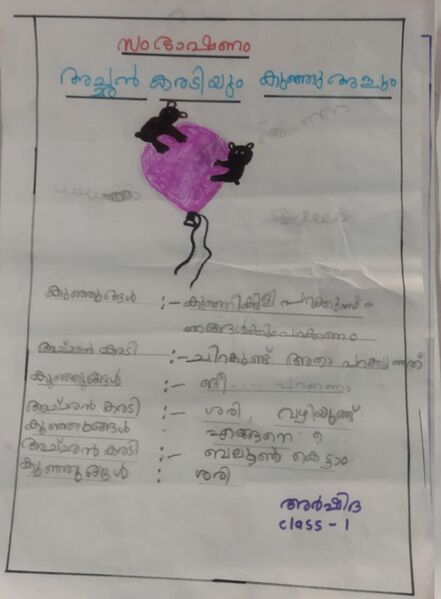 സംഭാഷണം
അച്ഛൻ കരടിയും കുഞ്ഞുങ്ങളും
കുഞ്ഞുങ്ങൾ :- കുഞ്ഞിക്കിളി പറക്കുന്നു
ഞങ്ങൾക്കും പറക്കണം
അച്ഛൻ കരടി :- ചിറകുണ്ട് അതാ പറക്കുന്നത്
കുഞ്ഞുങ്ങൾ :- ങീ.... പറക്കണം
അച്ഛൻ കരടി :- ശരി, വഴിയുണ്ട്
കുഞ്ഞുങ്ങൾ : എങ്ങനെ ?
അച്ഛൻ കരടി :- ബലൂൺ കെട്ടാം
കുഞ്ഞുങ്ങൾ : ശരി
അർഷിദ
class - 1